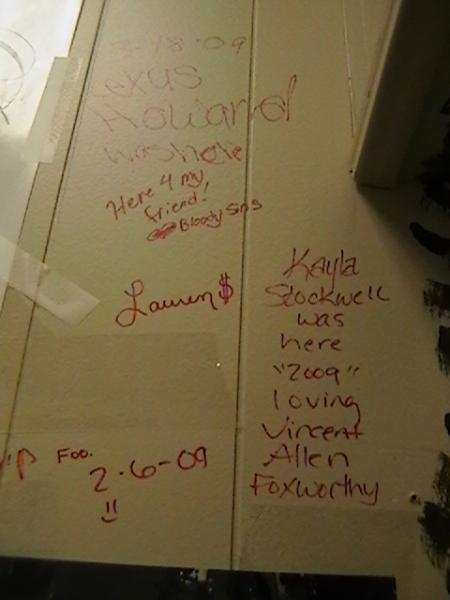 3-18-09
Lexus
Howard
was here
Here 4 my
friend!
Bloody Sins
Lauren $
Kayla
Stockwell
was
here
"2009"
loving
Vincent
Allen
Foxworthy
Foo.
2-6-09